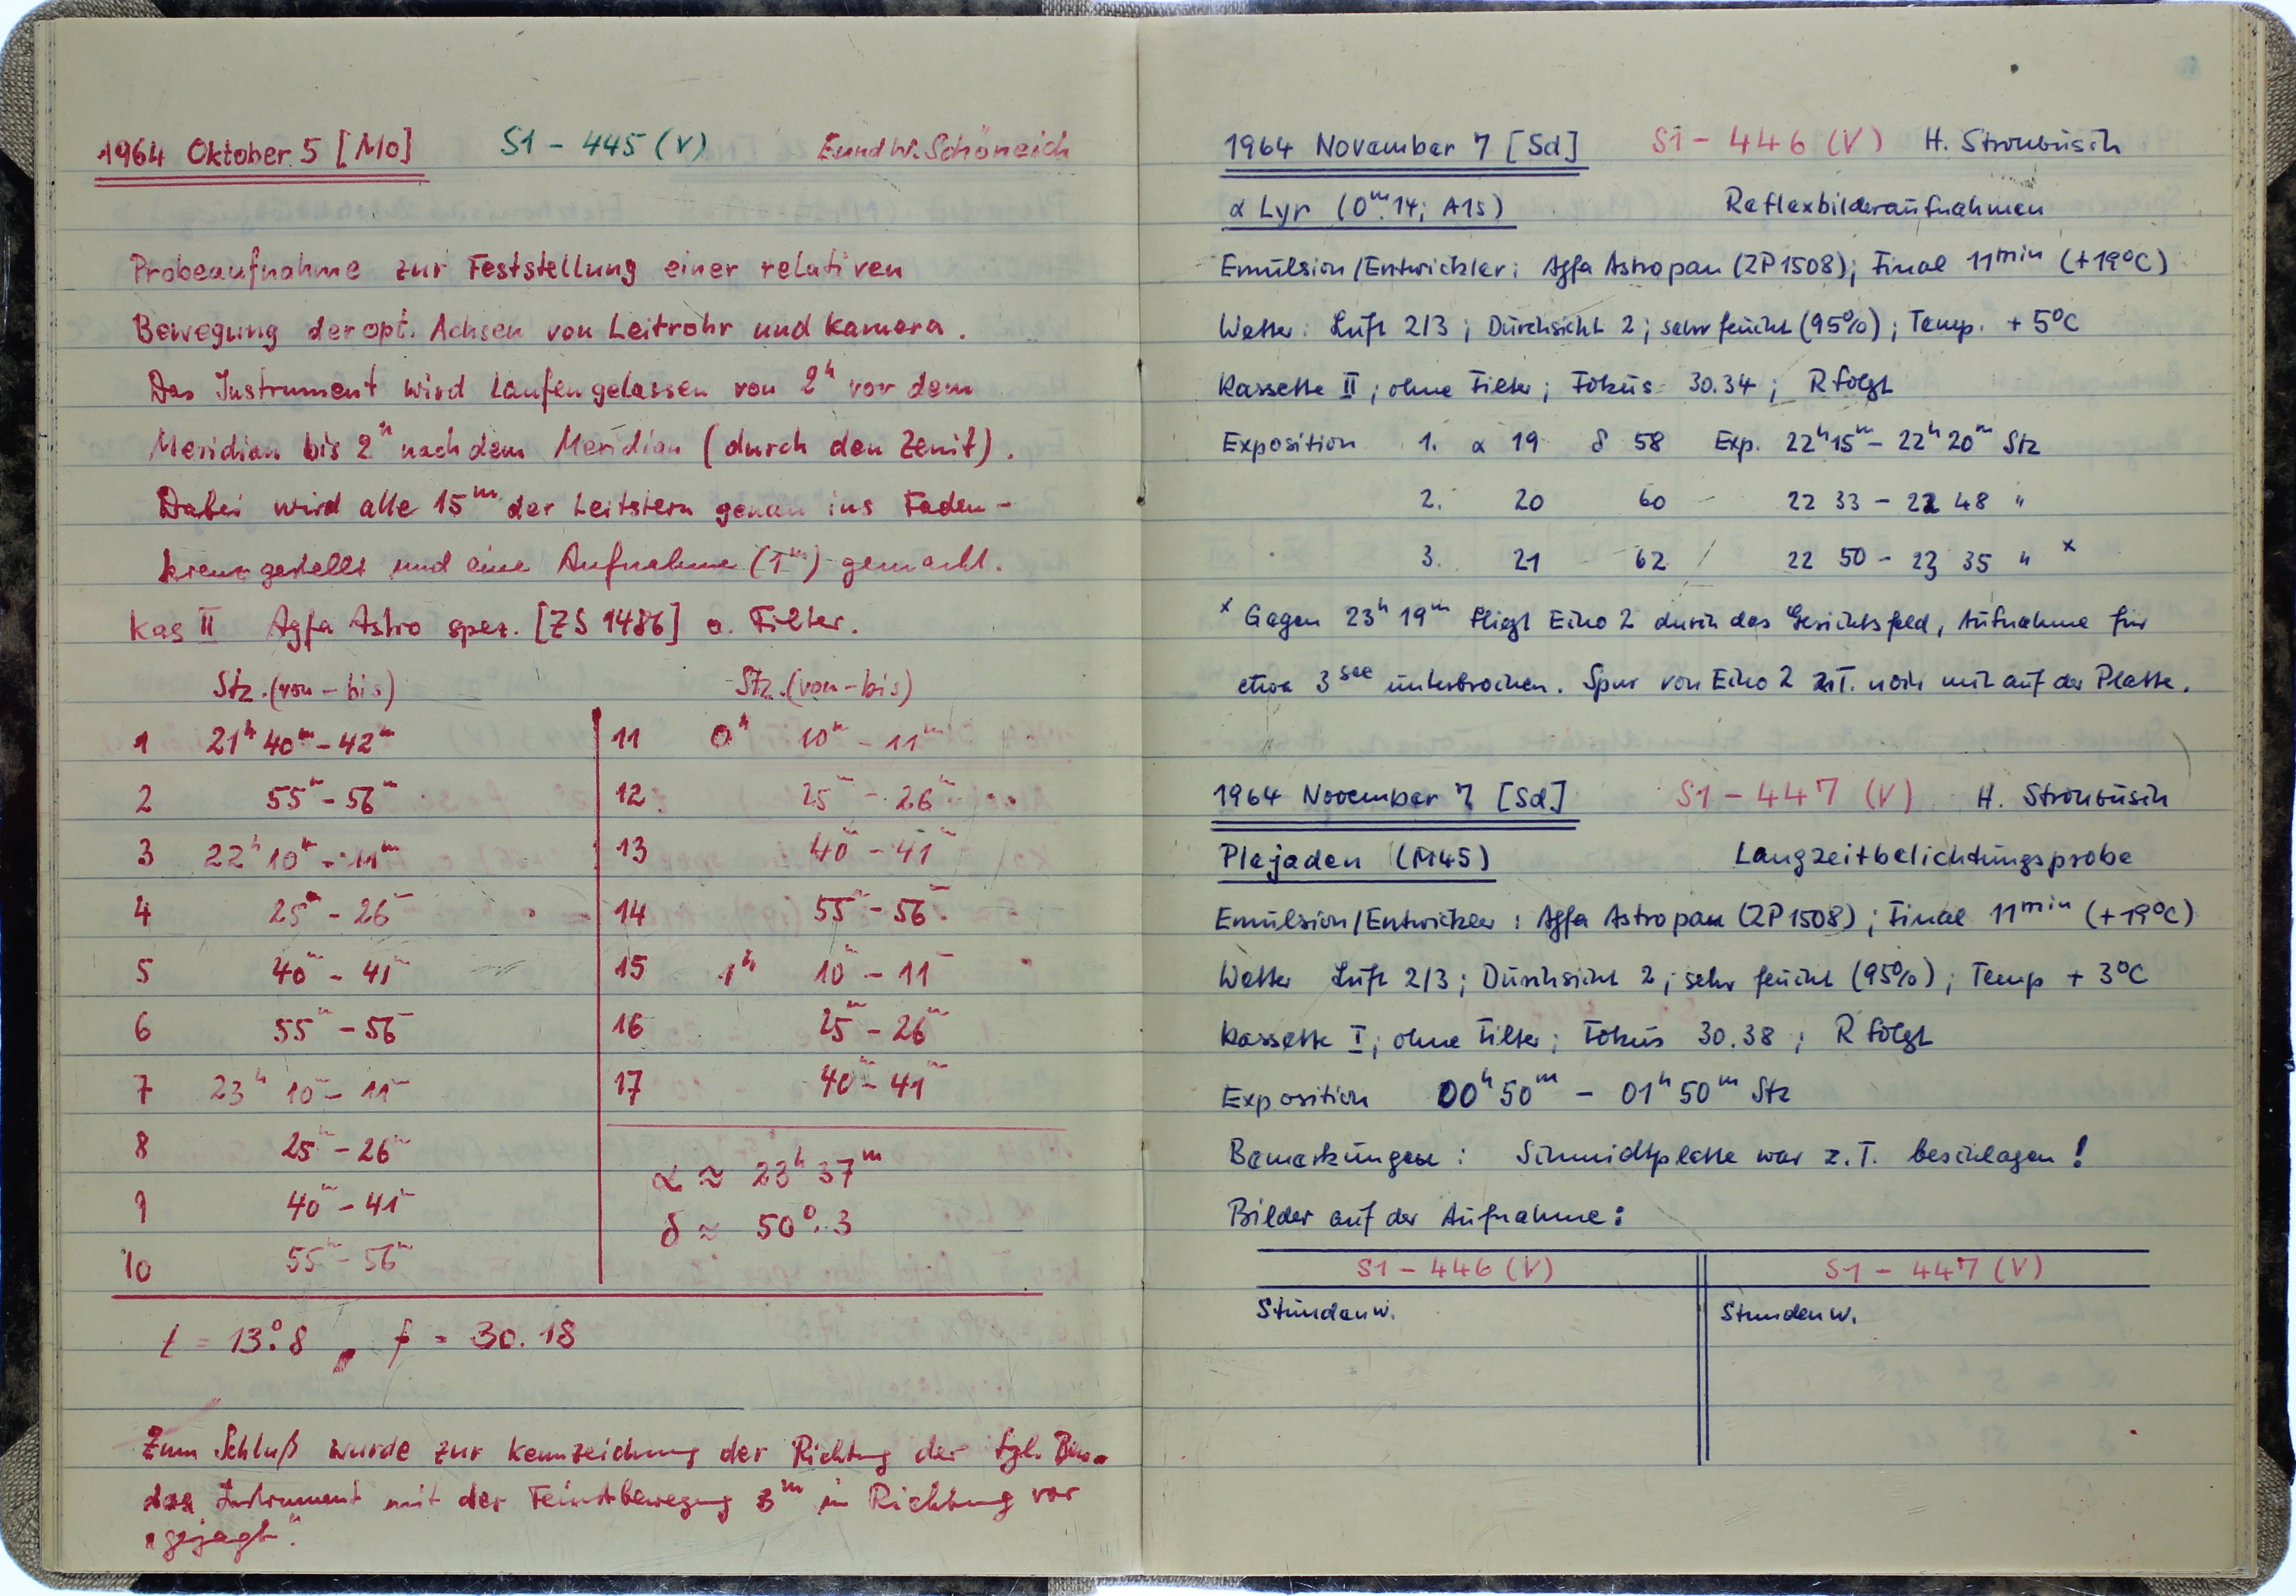 1964 Oktober 5 [Mo] S1 - 445 (V) E und W. Schöneich
Probeaufnahme zur Feststellung einer relativen
Bewegung der opt. Achsen von Leitrohr und Kamera.
Das Instrument wird laufen gelassen von 2h vor dem
Meridian bis 2h nach dem Meridian (durch den Zenit).
Dabei wird alle 15m der Leitstern genau ins Faden-
kreuz gestellt und eine Aufnahme (1m) gemacht.
Kas II Agfa Astro spez. [ZS 1486] o. Filter.
Stz. (von - bis) Stz. (von - bis)
1 21h 40m - 42m 11 0h 10m - 11m
2 55m - 56m 12 25m - 26m
3 22h 10m - 11m 13 40m - 41m
4 25m - 26m 14 55m - 56m
5 40m - 41m 15 1h 10m - 11m
6 55m - 56m 16 25m - 26m
7 23h 10m - 11m 17 40m - 41m
8 25m - 26m
9 40m - 41m
10 55m - 56m
α ≈ 23h 37m
δ ≈ 50°.3
t = 13°.8, f = 30.18
Zum Schluß wurde zur Kennzeichnung der Richtung der tgl. Bew.
das Instrument mit der Feinstbewegung 3m in Richtung vor
"gejagt".
1964 November 7 [Sd] S1 - 446 (V) H. Strohbusch
α Lyr (0m.14; A1s) Reflexbilderaufnahmen
Emulsion/Entwickler: Agfa Astropan (ZP1508); Final 11min (+19°C)
Wetter: Luft 2/3; Durchsicht 2; sehr feucht (95%); Temp. +5°C
Kassette II; ohne Filter; Fokus 30.34; R folgt
Exposition 1. α 19 δ 58 Exp. 22h 15m - 22h 20m Stz
2. 20 60 22 33 - 22 48 "
3. 21 62 22 50 - 23 35 " x
x Gegen 23h 19m fliegt Echo 2 durch das Gesichtsfeld, Aufnahme für
etwa 3sec unterbrochen. Spur von Echo 2 z.T. noch mit auf der Platte.
1964 November 7 [Sd] S1 - 447 (V) H. Strohbusch
Plejaden (M45) Langzeitbelichtungsprobe
Emulsion/Entwickler: Agfa Astropan (ZP1508); Final 11min (+19°C)
Wetter Luft 2/3; Durchsicht 2; sehr feucht (95%); Temp +3°C
Kassette I; ohne Filter; Fokus 30.38; R folgt
Exposition 00h 50m - 01h 50m Stz
Bemerkungen: Schmidtplatte war z.T. beschlagen!
Bilder auf der Aufnahme:
S1 - 446 (V) S1 - 447 (V)
Stundenw. Stundenw.